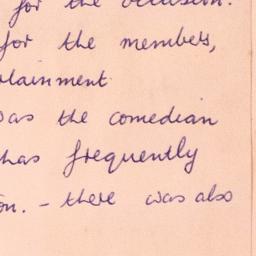 for the occasion.
for the members,
tainment
was the comedian
has frequently
on. - there was also